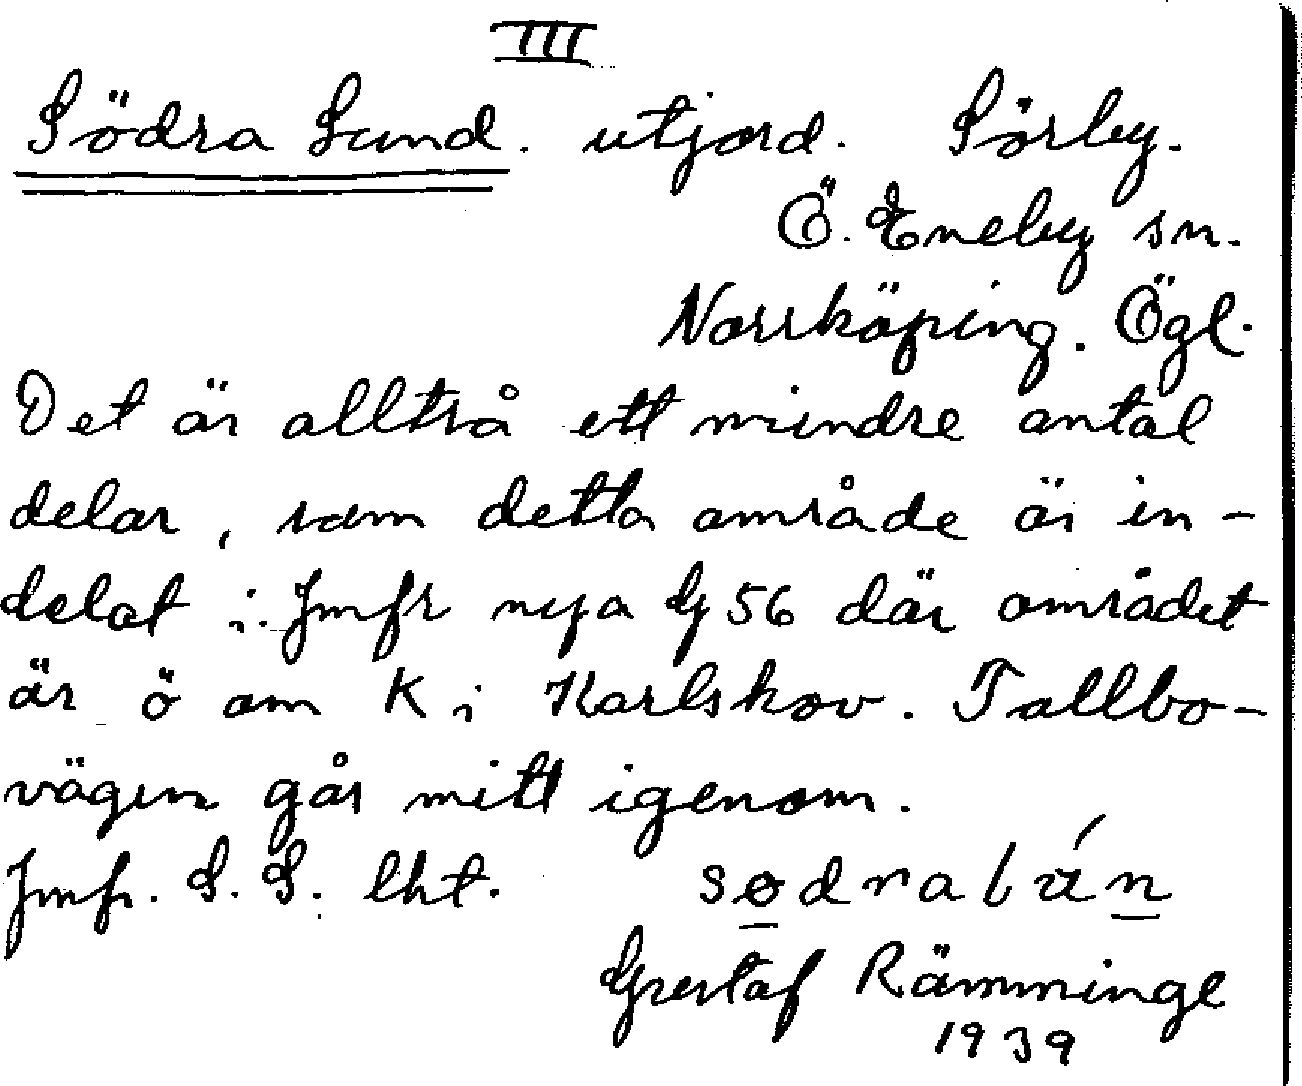 III
Södra Lund. utjord. Sörby.
Ö. Eneby sn.
Norrköping. Ögl.
Det är alltså ett mindre antal
delar, som detta område är in-
delat i. Jmfr nya G 56 där området
är ö om K i Karlskov. Tallbo-
vägen går mitt igenom.
Jmfr. S. S. lht.
Gustaf Rämminge
1939